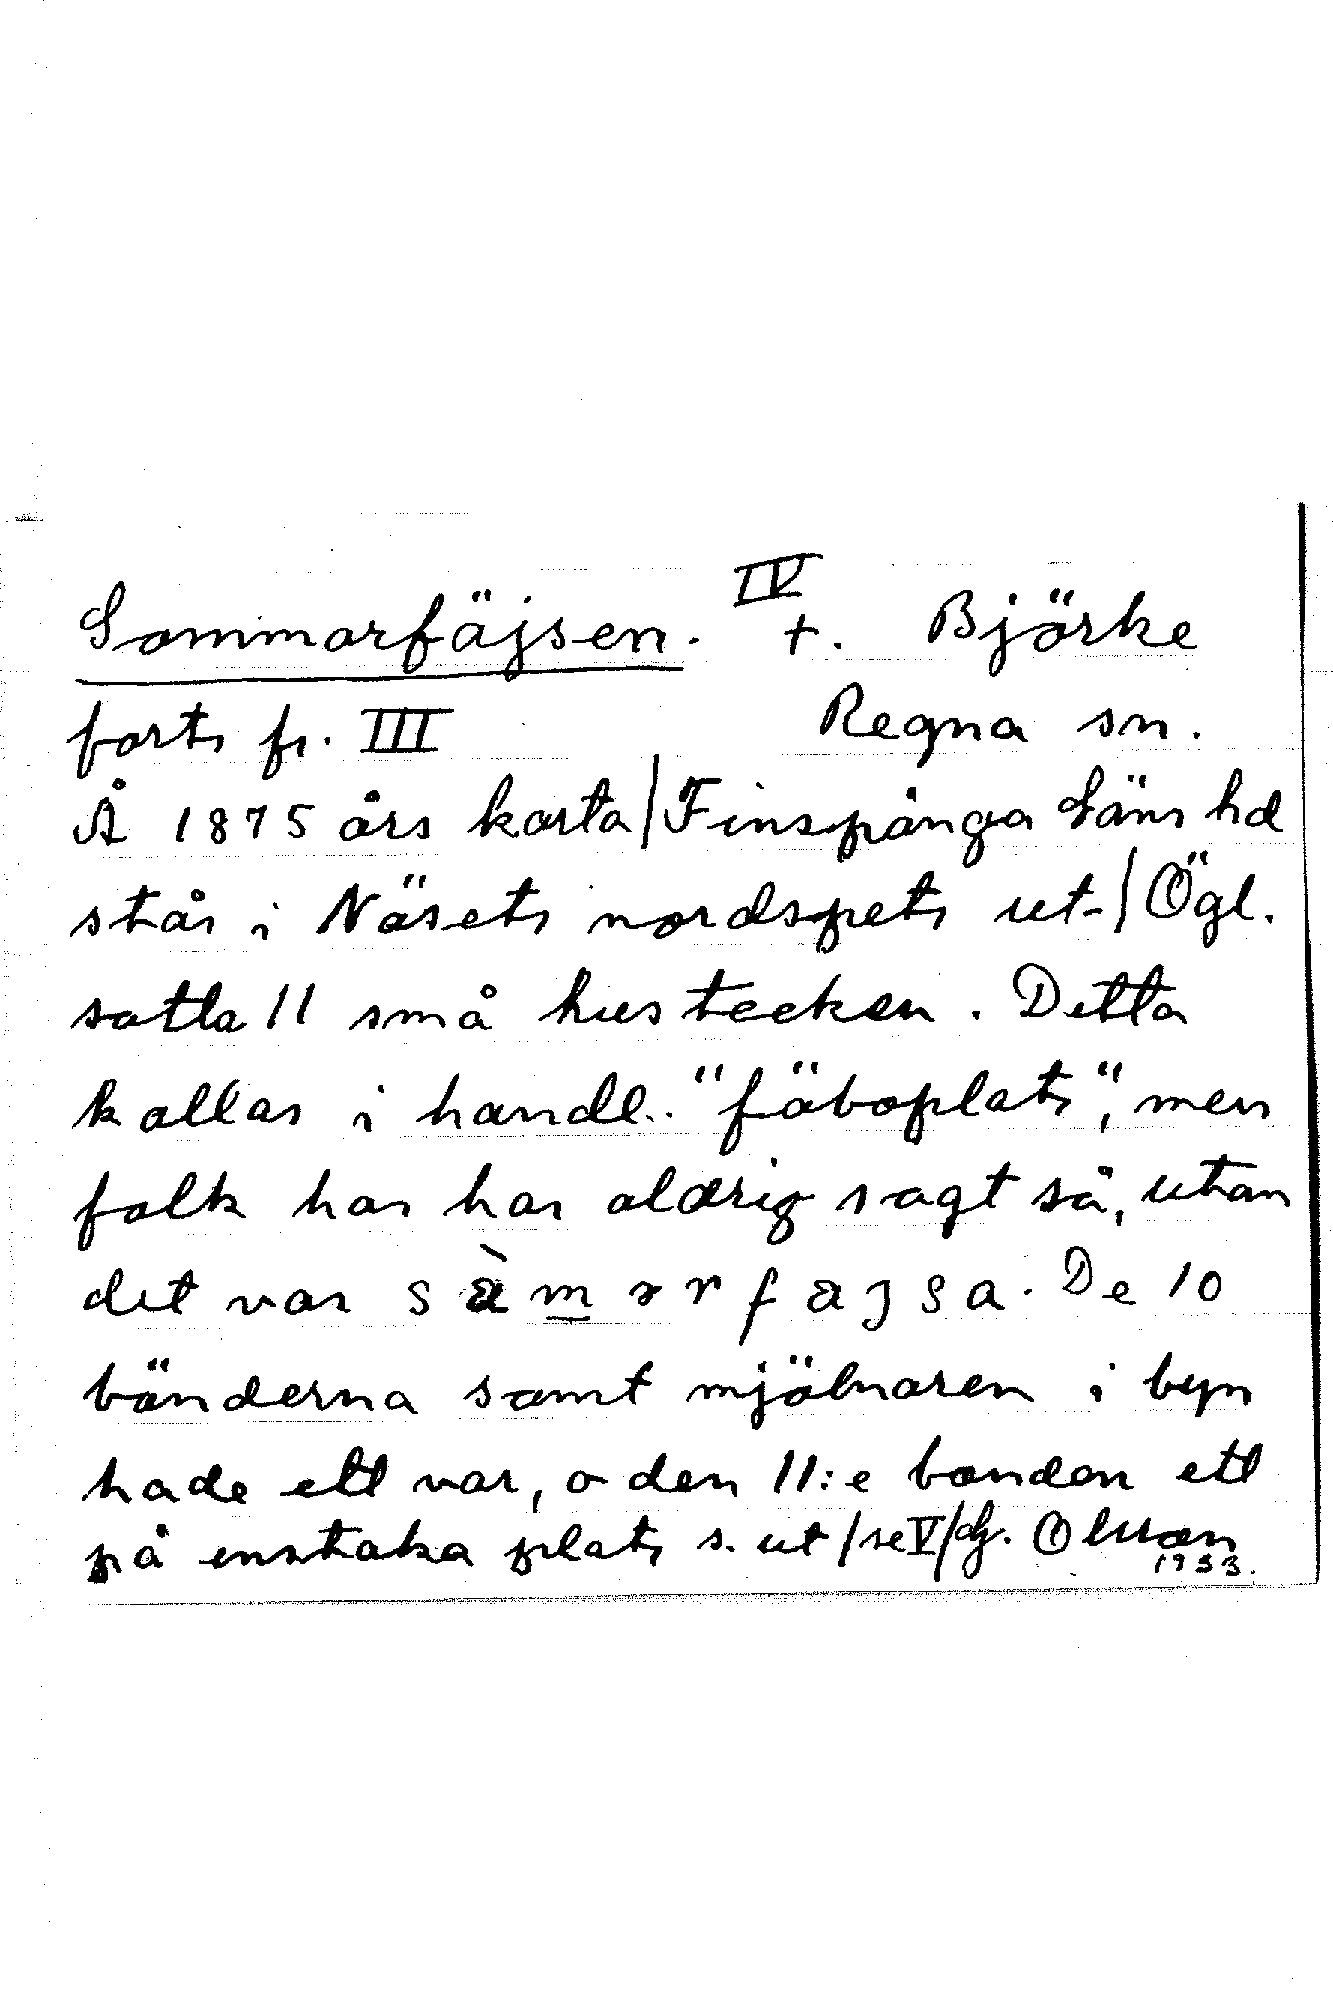 IV
Sommarfäjsen. +. Björke
forts fr. III Regna sn.
Å 1875 års karta / Finspånga Läns hd
står i Näsets nordspets ut- / Ögl.
satta 11 små hustecken. Detta
kallas i handl. "fäboplats", men
folk har har aldrig sagt så, utan
det var
De 10
bönderna samt mjölnaren i byn
hade ett var, o den 11:e bonden ett
på enstaka plats s. ut / se V /
1933.